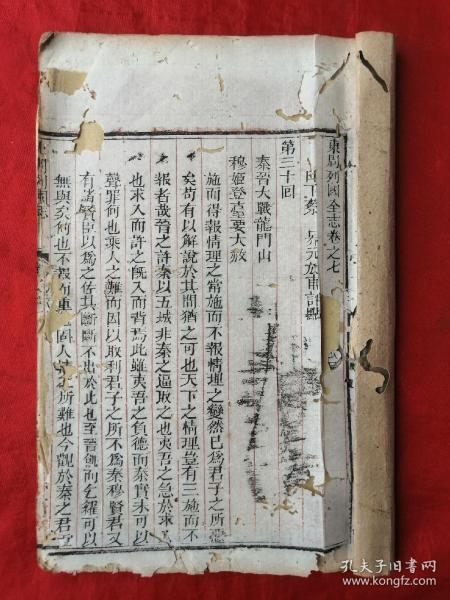 東周列國全志卷之七
下蔡 元放甫評點
第三十回
秦晉大戰龍門山
穆姬登臺要大赦
施而得報情理之常施而不報情理之變然已為君子之所惡
矣苟有以解說於其間猶之可也天下之情理豈有三施而不
報者哉晉之許秦以五城非秦之逼取之也夷吾之急於求入
也求入而許之既入而背焉此雖夷吾之負德而秦實未可以
聲罪何也乘人之難而因以取利君子之所不為秦穆賢君又
有諸賢臣以為之佐其斷斷不出於此也至晉饑而乞糴可以
無與矣何也不報而重 固人 之所難也今觀於秦之君
孔夫子旧书网
www.kongfz.com